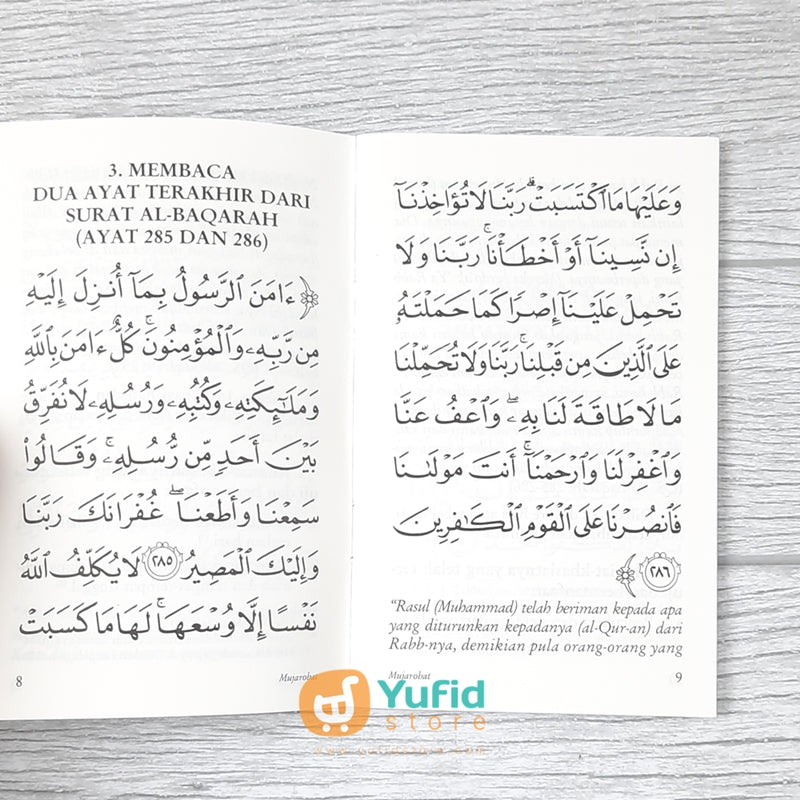 3. MEMBACA
DUA AYAT TERAKHIR DARI
SURAT AL-BAQARAH
(AYAT 285 DAN 286)
﴿ ءَامَنَ ٱلرَّسُولُ بِمَآ أُنزِلَ إِلَيْهِ
مِن رَّبِّهِۦ وَٱلْمُؤْمِنُونَ ۚ كُلٌّ ءَامَنَ بِٱللَّهِ
وَمَلَـٰٓئِكَتِهِۦ وَكُتُبِهِۦ وَرُسُلِهِۦ لَا نُفَرِّقُ
بَيْنَ أَحَدٍ مِّن رُّسُلِهِۦ ۚ وَقَالُوا۟
سَمِعْنَا وَأَطَعْنَا ۖ غُفْرَانَكَ رَبَّنَا
وَإِلَيْكَ ٱلْمَصِيرُ ٢٨٥ لَا يُكَلِّفُ ٱللَّهُ
نَفْسًا إِلَّا وُسْعَهَا ۚ لَهَا مَا كَسَبَتْ
8
Mujarobat
وَعَلَيْهَا مَا ٱكْتَسَبَتْ ۗ رَبَّنَا لَا تُؤَاخِذْنَآ
إِن نَّسِينَآ أَوْ أَخْطَأْنَا ۚ رَبَّنَا وَلَا
تَحْمِلْ عَلَيْنَآ إِصْرًا كَمَا حَمَلْتَهُۥ
عَلَى ٱلَّذِينَ مِن قَبْلِنَا ۚ رَبَّنَا وَلَا تُحَمِّلْنَا
مَا لَا طَاقَةَ لَنَا بِهِۦ ۖ وَٱعْفُ عَنَّا
وَٱغْفِرْ لَنَا وَٱرْحَمْنَآ ۚ أَنتَ مَوْلَىٰنَا
فَٱنصُرْنَا عَلَى ٱلْقَوْمِ ٱلْكَـٰفِرِينَ
٢٨٦ ﴾
“Rasul (Muhammad) telah beriman kepada apa
yang diturunkan kepadanya (al-Qur-an) dari
Rabb-nya, demikian pula orang-orang yang
Mujarobat
9
Yufid
store